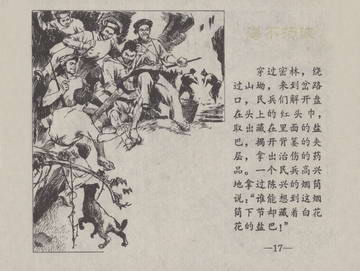 穿过密林，绕
过山坳，来到岔路
口，民兵们解开盘
在头上的红头巾，
取出藏在里面的盐
巴，揭开背篓的夹
层，拿出治伤的药
品。一个民兵高兴
地拿过陈兴的烟筒
说：“谁能想到这烟
筒下节却藏着白花
花的盐巴！”
—17—